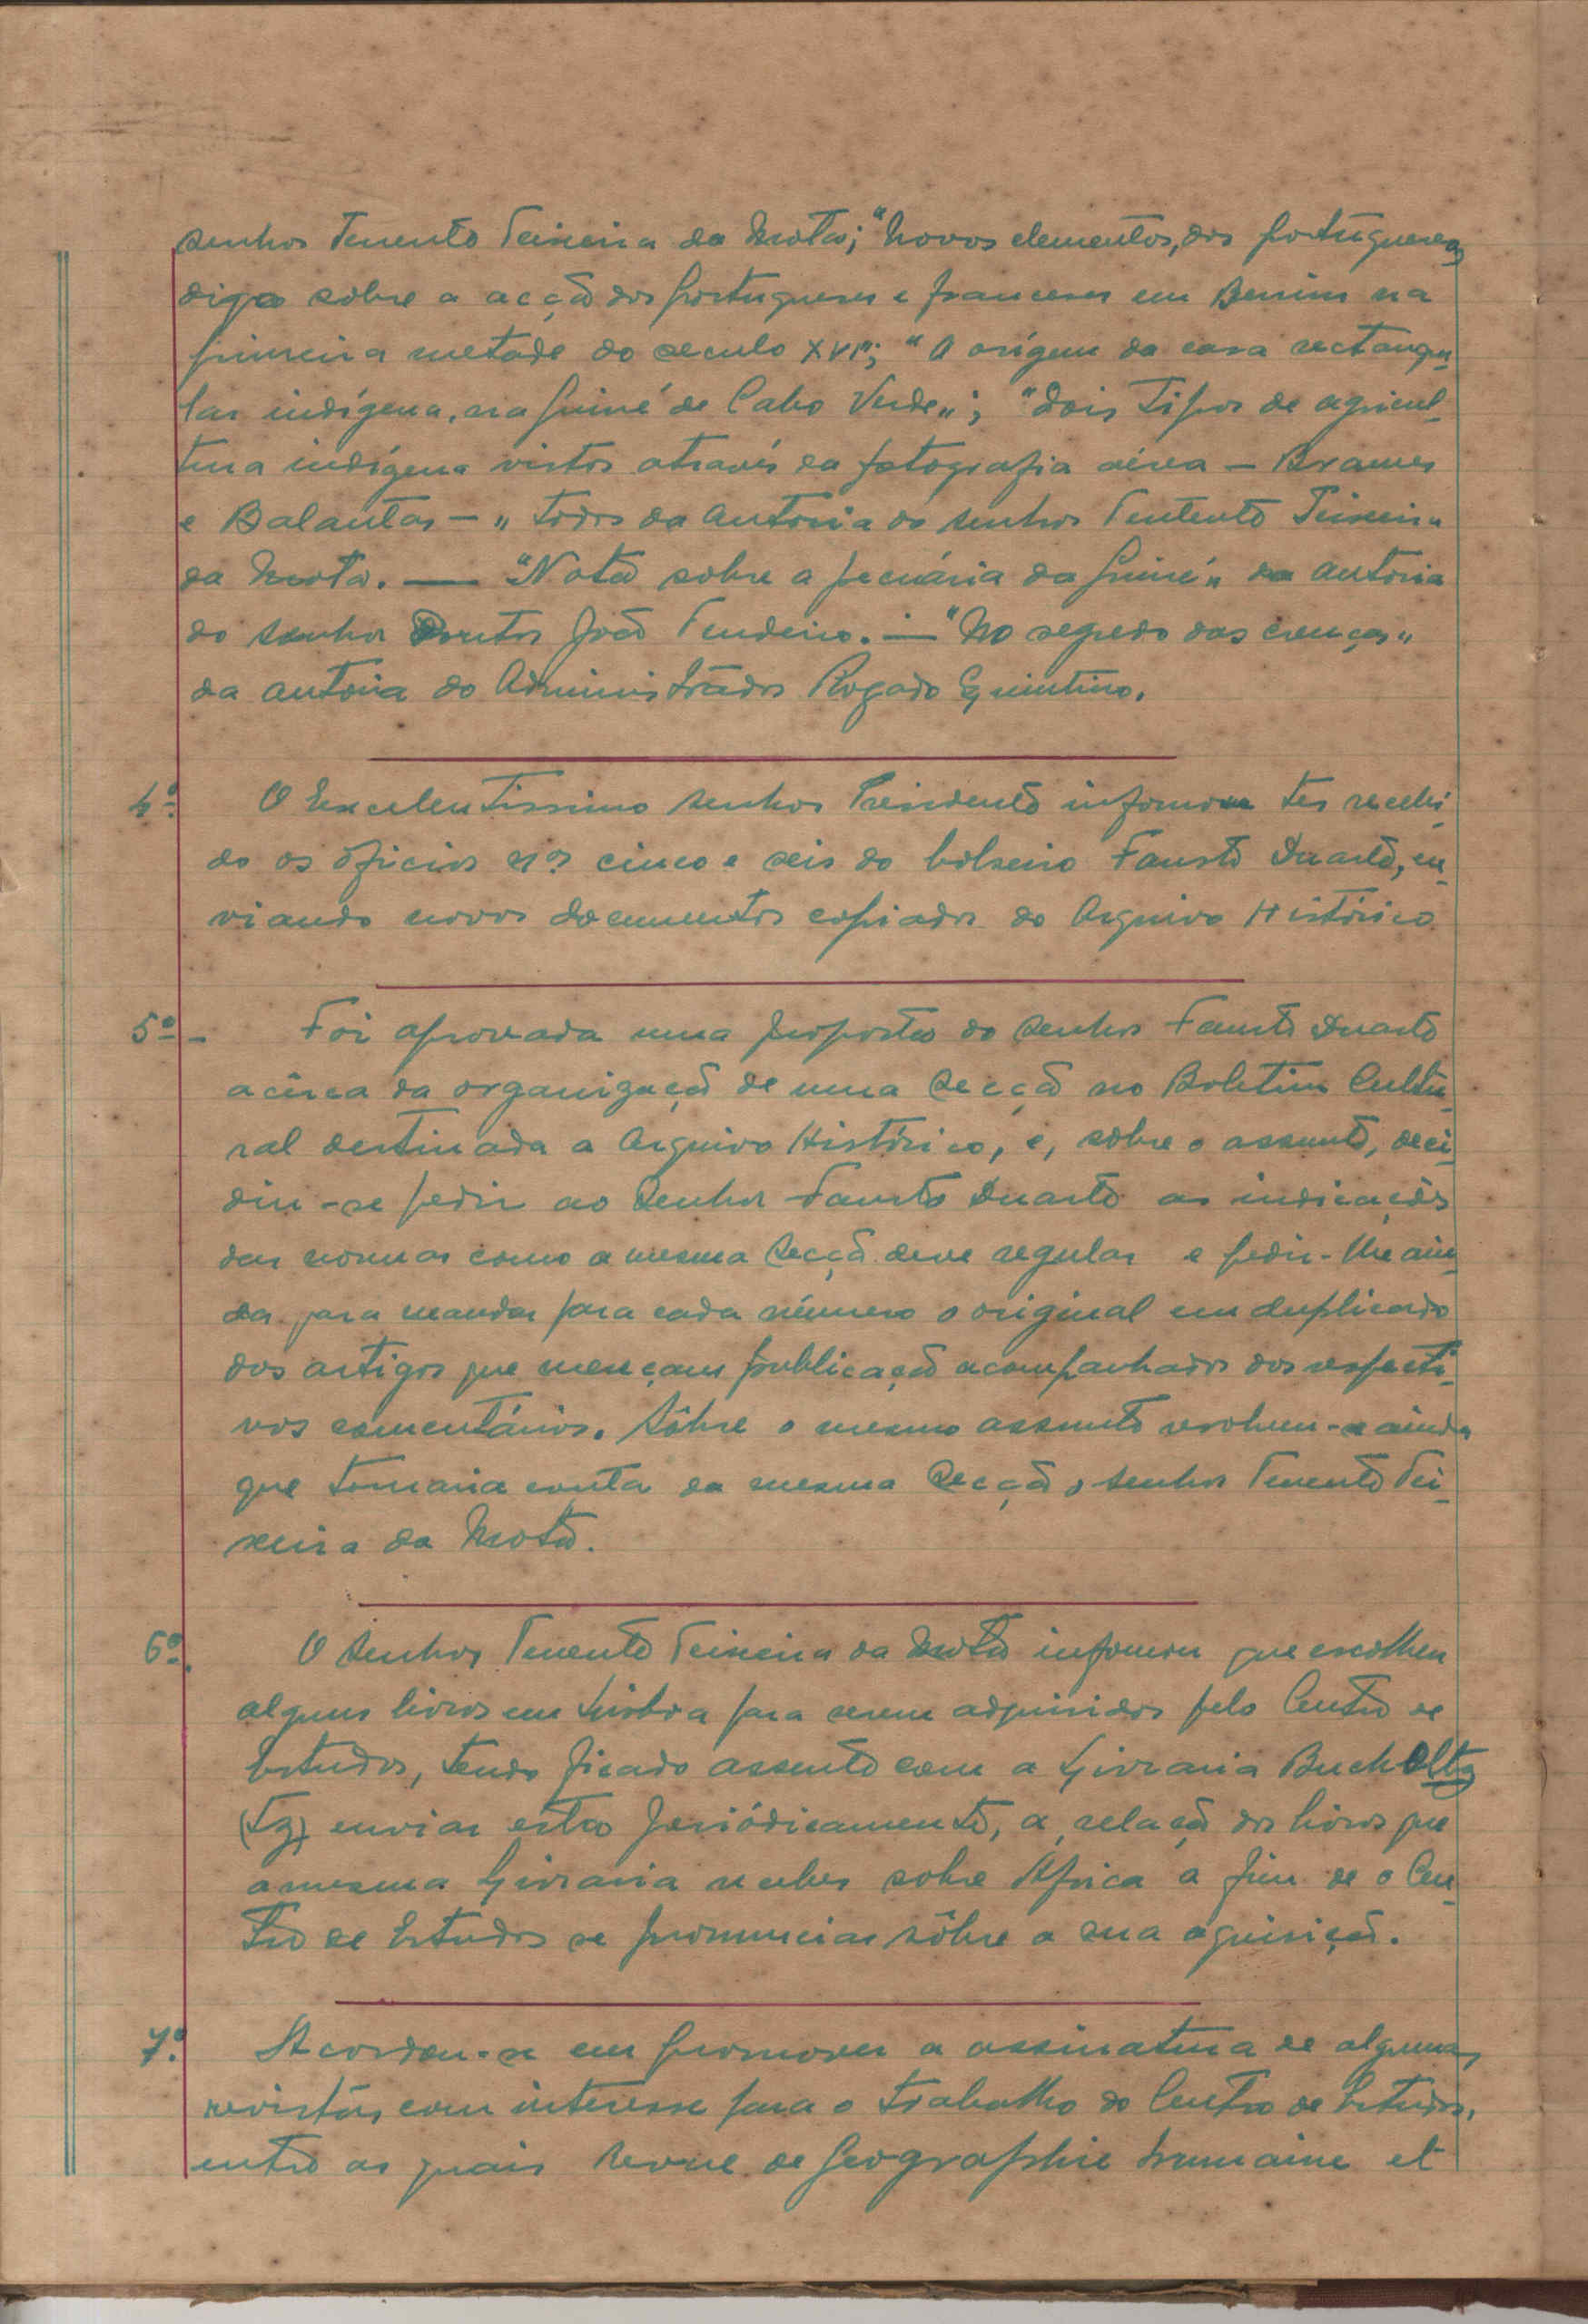 senhor Tenente Teixeira da Mota; "Novos elementos, dos portugueses
digo sobre a acção dos portugueses e franceses em Benim na
primeira metade do seculo XVI"; "A orígem da casa rectangu-
lar indígena, na Guiné de Cabo Verde"; "Dois tipos de agricul-
tura indígena vistos através da fotografia aérea — Brames
e Balantas — " todos da autoria do senhor Tentente Teixeira
da Mota. — "Nota sobre a pecuária da Guiné" da autoria
do senhor Doutor João Tendeiro. — "No segredo das crenças"
da autoria do Administrador Rogado Quintino.
4º. O Excelentissimo senhor Presidente informou ter recebi-
do os ofícios nºs cinco e seis do bolseiro Fausto Duarte, en-
viando novos documentos copiados do Arquivo Histórico
5º - Foi aprovada uma proposta do senhor Fausto Duarte
acêrca da organização de uma Secção no Boletim Cultu-
ral destinada a Arquivo Histórico, e, sôbre o assunto, deci-
diu-se pedir ao Senhor Fausto Duarte as indicações
das normas como a mesma Secção deve regular e pedir-lhe ain-
da para mandar para cada número o original em duplicado
dos artigos que mereçam publicação acompanhados dos respecti-
vos comentários. Sôbre o mesmo assunto resolveu-se ainda
que tomaria conta da mesma Secção o senhor Tenente Tei-
xeira da Mota.
6º. O Senhor Tenente Teixeira da Mota informou que escolheu
alguns livros em Lisboa para serem adquiridos pelo Centro de
Estudos, tendo ficado assente com a Livraria Bucholtz
(tz) enviar esta periódicamente, a relação dos livros que
a mesma Livraria receber sobre Africa a fim de o Cen-
tro de Estudos se pronunciar sôbre a sua aquisição.
7º. Acordou-se em promover a assinatura de algumas
revistas com interesse para o trabalho do Centro de Estudos,
entre as quais Revue de Geographie humaine et